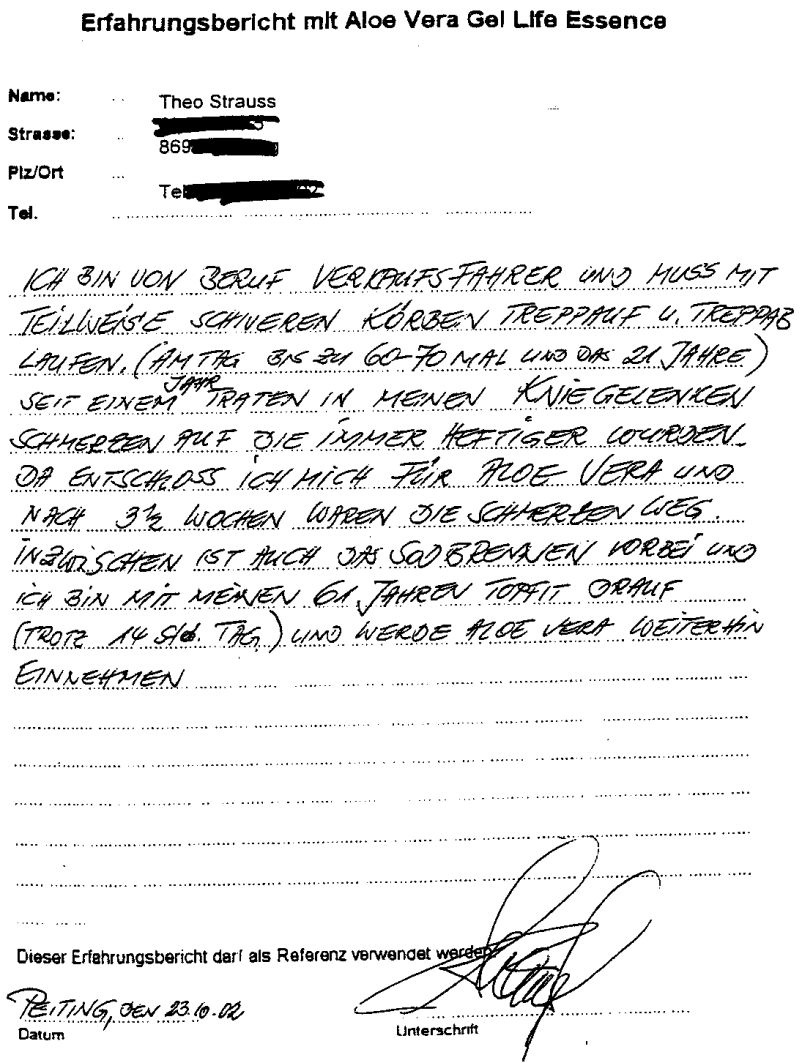 Erfahrungsbericht mit Aloe Vera Gel Life Essence
Name: Theo Strauss
Strasse:
869
Plz/Ort
Tel.
Tel.
ICH BIN VON BERUF VERKAUFSFAHRER UND MUSS MIT
TEILWEISE SCHWEREN KÖRBEN TREPPAUF U. TREPPAB
LAUFEN. (AM TAG BIS ZU 60-70 MAL UND DAS 21 JAHRE)
SEIT EINEM JAHR TRATEN IN MEINEN KNIEGELENKEN
SCHMERZEN AUF DIE IMMER HEFTIGER WURDEN.
DA ENTSCHLOSS ICH MICH FÜR ALOE VERA UND
NACH 3½ WOCHEN WAREN DIE SCHMERZEN WEG.
INZWISCHEN IST AUCH DAS SODBRENNEN VORBEI UND
ICH BIN MIT MEINEN 61 JAHREN TOPFIT DRAUF
(TROTZ 14 Std. TAG) UND WERDE ALOE VERA WEITERHIN
EINNEHMEN
Dieser Erfahrungsbericht darf als Referenz verwendet werden.
PEITING, DEN 23.10.02
Datum
Unterschrift